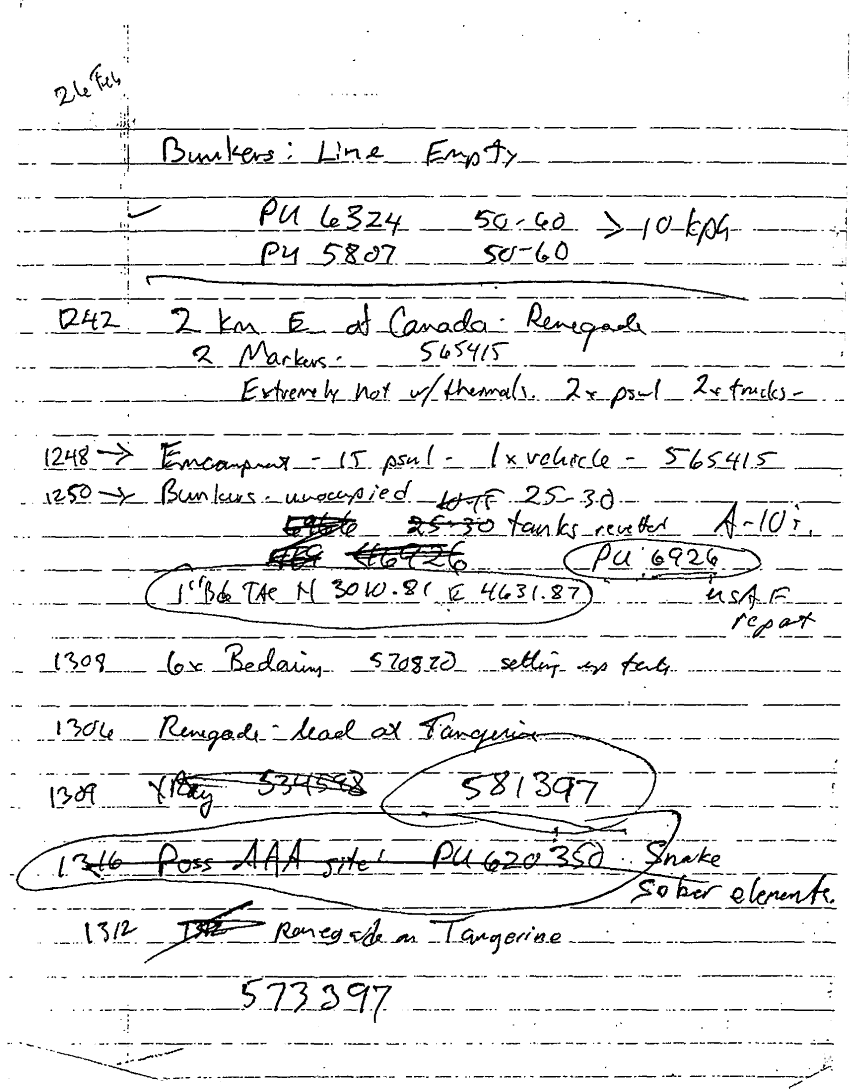 26 Feb
Bunkers: Line Empty
✓ PU 6324 50-60 > 10 kph
PU 5807 50-60
1242 2 km E of Canada - Renegade
2 Markers - 565415
Extremely hot w/ thermals. 2x psnl 2x trucks -
1248 → Encampment - 15 psnl - 1x vehicle - 565415
1250 → Bunkers - unoccupied 25-30
25-30 tanks revetted A-10's
46926 PU 6926
1st Bde TAC N 3010.81 E 4631.87 USAF
report
1308 6x 570820 setting up
1306 Renegade - lead at Tangerine
1309 XRay 534598 581397
1316 Poss AAA site PU 620350 Snake
Sober elements.
1312 1312 Renegade on Tangerine
573397